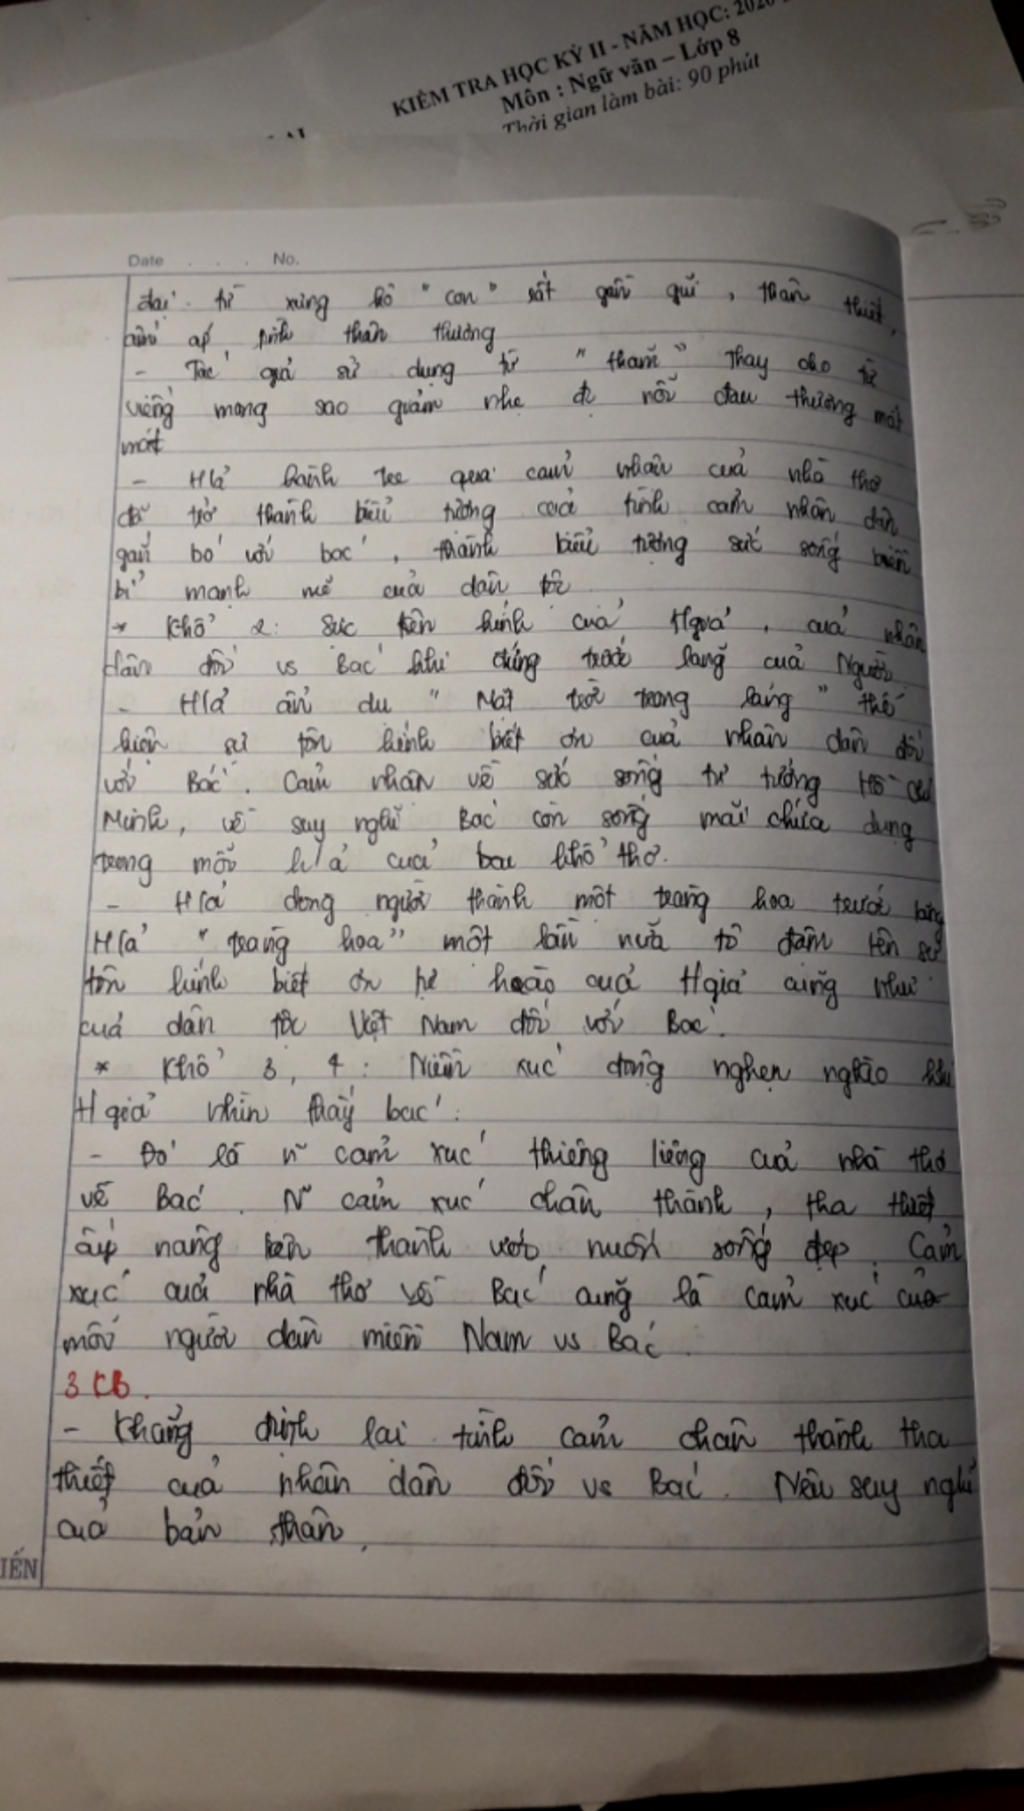 KIỂM TRA HỌC KỲ II - NĂM HỌC: 2020
Môn : Ngữ văn – Lớp 8
Thời gian làm bài: 90 phút
Date . . . . No.
đại từ xưng hô "con" rất gần gũi, thân thiết,
ấm áp tình thân thương
- Tác giả sử dụng từ "thăm" thay cho từ
viếng mong sao giảm nhẹ đi nỗi đau thương mất
mát
- H/ả hành tre qua cảm nhận của nhà thơ
đã trở thành biểu tượng của tình cảm nhân dân
gắn bó với bác, thành biểu tượng sức sống bền
bỉ mạnh mẽ của dân tộc
* Khổ 2: Sức tôn kính của tgiả, của nhân
dân đối vs Bác khi đứng trước lăng của Người.
- H/ả ẩn dụ "Mặt trời trong lăng" thể
hiện sự tôn kính biết ơn của nhân dân đối
với Bác. Cảm nhận về sức sống tư tưởng Hồ Chí
Minh, về suy nghĩ Bác còn sống mãi chứa dựng
trong mỗi h/ả của bau khổ thơ.
- H/ả dòng người thành một tràng hoa trước lăng
H/ả "tràng hoa" một lần nữa tô đậm lên sự
tôn kính biết ơn tự hào của tgiả cũng như
của dân tộc Việt Nam đối với Bác.
* Khổ 3, 4: Niềm xúc động nghẹn ngào khi
tgiả nhìn thấy bác:
- Đó là n~ cảm xúc thiêng liêng của nhà thơ
về Bác. N~ cảm xúc chân thành, tha thiết
ấy nâng lên thành ước muốn sống đẹp. Cảm
xúc của nhà thơ về Bác cũng là cảm xúc của
mỗi người dân miền Nam vs Bác.
3 KB.
- Khẳng định lại tình cảm chân thành tha
thiết của nhân dân đối vs Bác. Nêu suy nghĩ
của bản thân.
IẾN